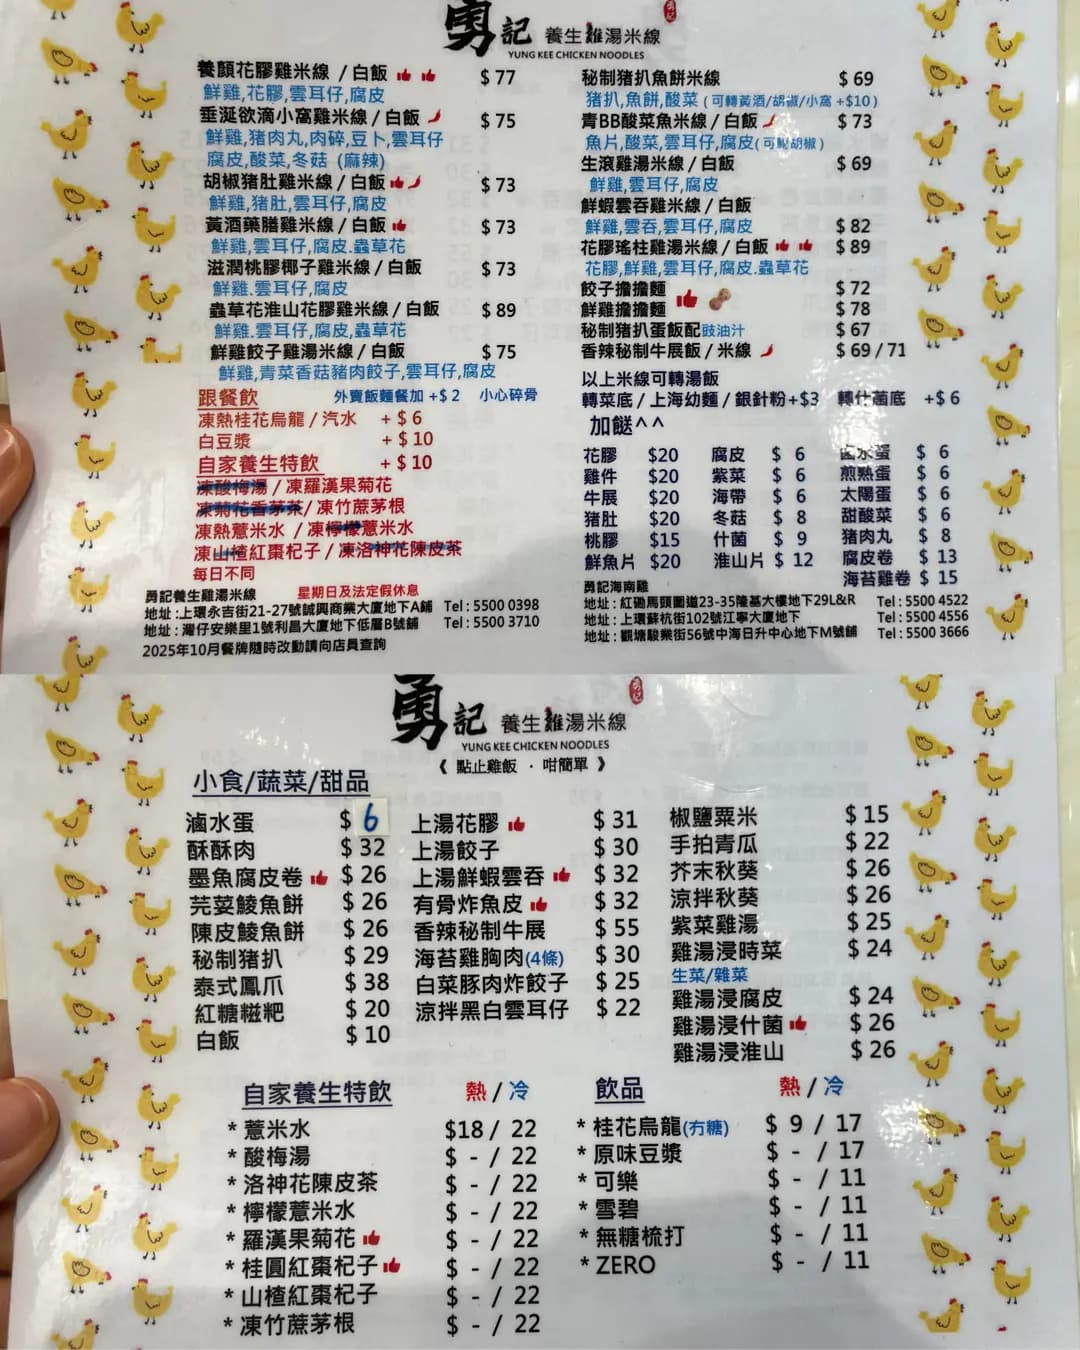 勇記 養生雞湯米線
YUNG KEE CHICKEN NOODLES
養顏花膠雞米線 / 白飯 $ 77
鮮雞,花膠,雲耳仔,腐皮
垂涎欲滴小窩雞米線 / 白飯 $ 75
鮮雞,猪肉丸,肉碎,豆卜,雲耳仔
腐皮,酸菜,冬菇 (麻辣)
胡椒猪肚雞米線 / 白飯 $ 73
鮮雞,猪肚,雲耳仔,腐皮
黃酒藥膳雞米線 / 白飯 $ 73
鮮雞,雲耳仔,腐皮.蟲草花
滋潤桃膠椰子雞米線 / 白飯 $ 73
鮮雞.雲耳仔,腐皮
蟲草花淮山花膠雞米線 / 白飯 $ 89
鮮雞.雲耳仔,腐皮,蟲草花
鮮雞餃子雞湯米線 / 白飯 $ 75
鮮雞,青菜香菇豬肉餃子,雲耳仔,腐皮
跟餐飲 外賣飯麵餐加 +$ 2 小心碎骨
凍熱桂花烏龍 / 汽水 + $ 6
白豆漿 + $ 10
自家養生特飲 + $ 10
凍酸梅湯 / 凍羅漢果菊花
凍菊花香茅茶 / 凍竹蔗茅根
凍熱薏米水 / 凍檸檬薏米水
凍山楂紅棗杞子 / 凍洛神花陳皮茶
每日不同
秘制猪扒魚餅米線 $ 69
猪扒,魚餅,酸菜 ( 可轉黃酒/胡椒/小窩 +$10 )
青BB酸菜魚米線 / 白飯 $ 73
魚片,酸菜,雲耳仔,腐皮( 可 胡椒 )
生滾雞湯米線 / 白飯 $ 69
鮮雞,雲耳仔,腐皮
鮮蝦雲吞雞米線 / 白飯
鮮雞,雲吞,雲耳仔,腐皮 $ 82
花膠瑤柱雞湯米線 / 白飯 $ 89
花膠,鮮雞,雲耳仔,腐皮.蟲草花
餃子擔擔麵 $ 72
鮮雞擔擔麵 $ 78
秘制猪扒蛋飯配豉油汁 $ 67
香辣秘制牛展飯 / 米線 $ 69 / 71
以上米線可轉湯飯
轉菜底 / 上海幼麵 / 銀針粉+$3 轉什菌底 +$ 6
加餸^^
花膠 $20 腐皮 $ 6 鹵水蛋 $ 6
雞件 $20 紫菜 $ 6 煎熟蛋 $ 6
牛展 $20 海帶 $ 6 太陽蛋 $ 6
猪肚 $20 冬菇 $ 8 甜酸菜 $ 6
桃膠 $15 什菌 $ 9 猪肉丸 $ 8
鮮魚片 $20 淮山片 $ 12 腐皮卷 $ 13
海苔雞卷 $ 15
勇記養生雞湯米線 星期日及法定假休息
地址 : 上環永吉街21-27號誠興商業大廈地下A鋪 Tel : 5500 0398
地址 : 灣仔安樂里1號利昌大廈地下低層B號鋪 Tel : 5500 3710
2025年10月餐牌隨時改動請向店員查詢
勇記海南雞
地址 : 紅磡馬頭圍道23-35隆基大樓地下29L&R Tel : 5500 4522
地址 : 上環蘇杭街102號江寧大廈地下 Tel : 5500 4556
地址 : 觀塘駿業街56號中海日升中心地下M號鋪 Tel : 5500 3666
勇記 養生雞湯米線
YUNG KEE CHICKEN NOODLES
《 點止雞飯 · 咁簡單 》
小食/蔬菜/甜品
滷水蛋 $ 6
酥酥肉 $ 32
墨魚腐皮卷 $ 26
芫荽鯪魚餅 $ 26
陳皮鯪魚餅 $ 26
秘制猪扒 $ 29
泰式鳳爪 $ 38
紅糖糍粑 $ 20
白飯 $ 10
上湯花膠 $ 31
上湯餃子 $ 30
上湯鮮蝦雲吞 $ 32
有骨炸魚皮 $ 32
香辣秘制牛展 $ 55
海苔雞胸肉(4條) $ 30
白菜豚肉炸餃子 $ 25
涼拌黑白雲耳仔 $ 22
椒鹽粟米 $ 15
手拍青瓜 $ 22
芥末秋葵 $ 26
涼拌秋葵 $ 26
紫菜雞湯 $ 25
雞湯浸時菜 $ 24
生菜/雜菜
雞湯浸腐皮 $ 24
雞湯浸什菌 $ 26
雞湯浸淮山 $ 26
自家養生特飲 熱 / 冷
* 薏米水 $18 / 22
* 酸梅湯 $ - / 22
* 洛神花陳皮茶 $ - / 22
* 檸檬薏米水 $ - / 22
* 羅漢果菊花 $ - / 22
* 桂圓紅棗杞子 $ - / 22
* 山楂紅棗杞子 $ - / 22
* 凍竹蔗茅根 $ - / 22
飲品 熱 / 冷
* 桂花烏龍(冇糖) $ 9 / 17
* 原味豆漿 $ - / 17
* 可樂 $ - / 11
* 雪碧 $ - / 11
* 無糖梳打 $ - / 11
* ZERO $ - / 11